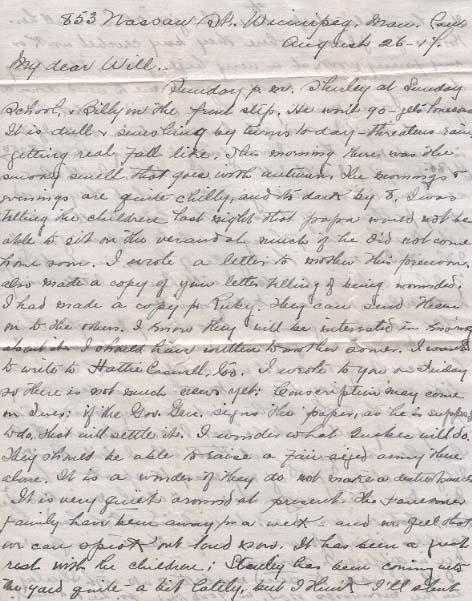 853 Nassau St. Winnipeg, Man. Can
August 26-17.
My dear Will..
Sunday p.m. Shirley at Sunday
School, & Billy on the front step. He won't go - gets
It is dull & sunshine by turns to day - threatens rain,
getting real fall like. This morning there was the
smoky smell that goes with autumn. The mornings &
evenings are quite chilly, and its dark by 8. I was
telling the children last night that papa would not be
able to sit on the verandah much if he did not come
home soon. I wrote a letter to mother this
also made a copy of your letter telling of being wounded.
I had made a copy for Ruby. They can send them
on to the others. I know they will be interested in
about it. I should have written to mother sooner. I want
to write to Hattie too. I wrote to you on Friday
so there is not much news yet. Conscription may come
on Tues: if the Gov. Gen. signs the paper, as he is
to do, that will settle it. I wonder what Quebec will do.
They should be able to raise a fair sized army there
alone. It is a wonder if they do not make a
It is very quiet around at present. The
family have been away for a week - and we feel that
we can speak out loud now. It has been a great
rest with the children: Stanley has been coming into
the yard quite a bit lately, but I think I'll